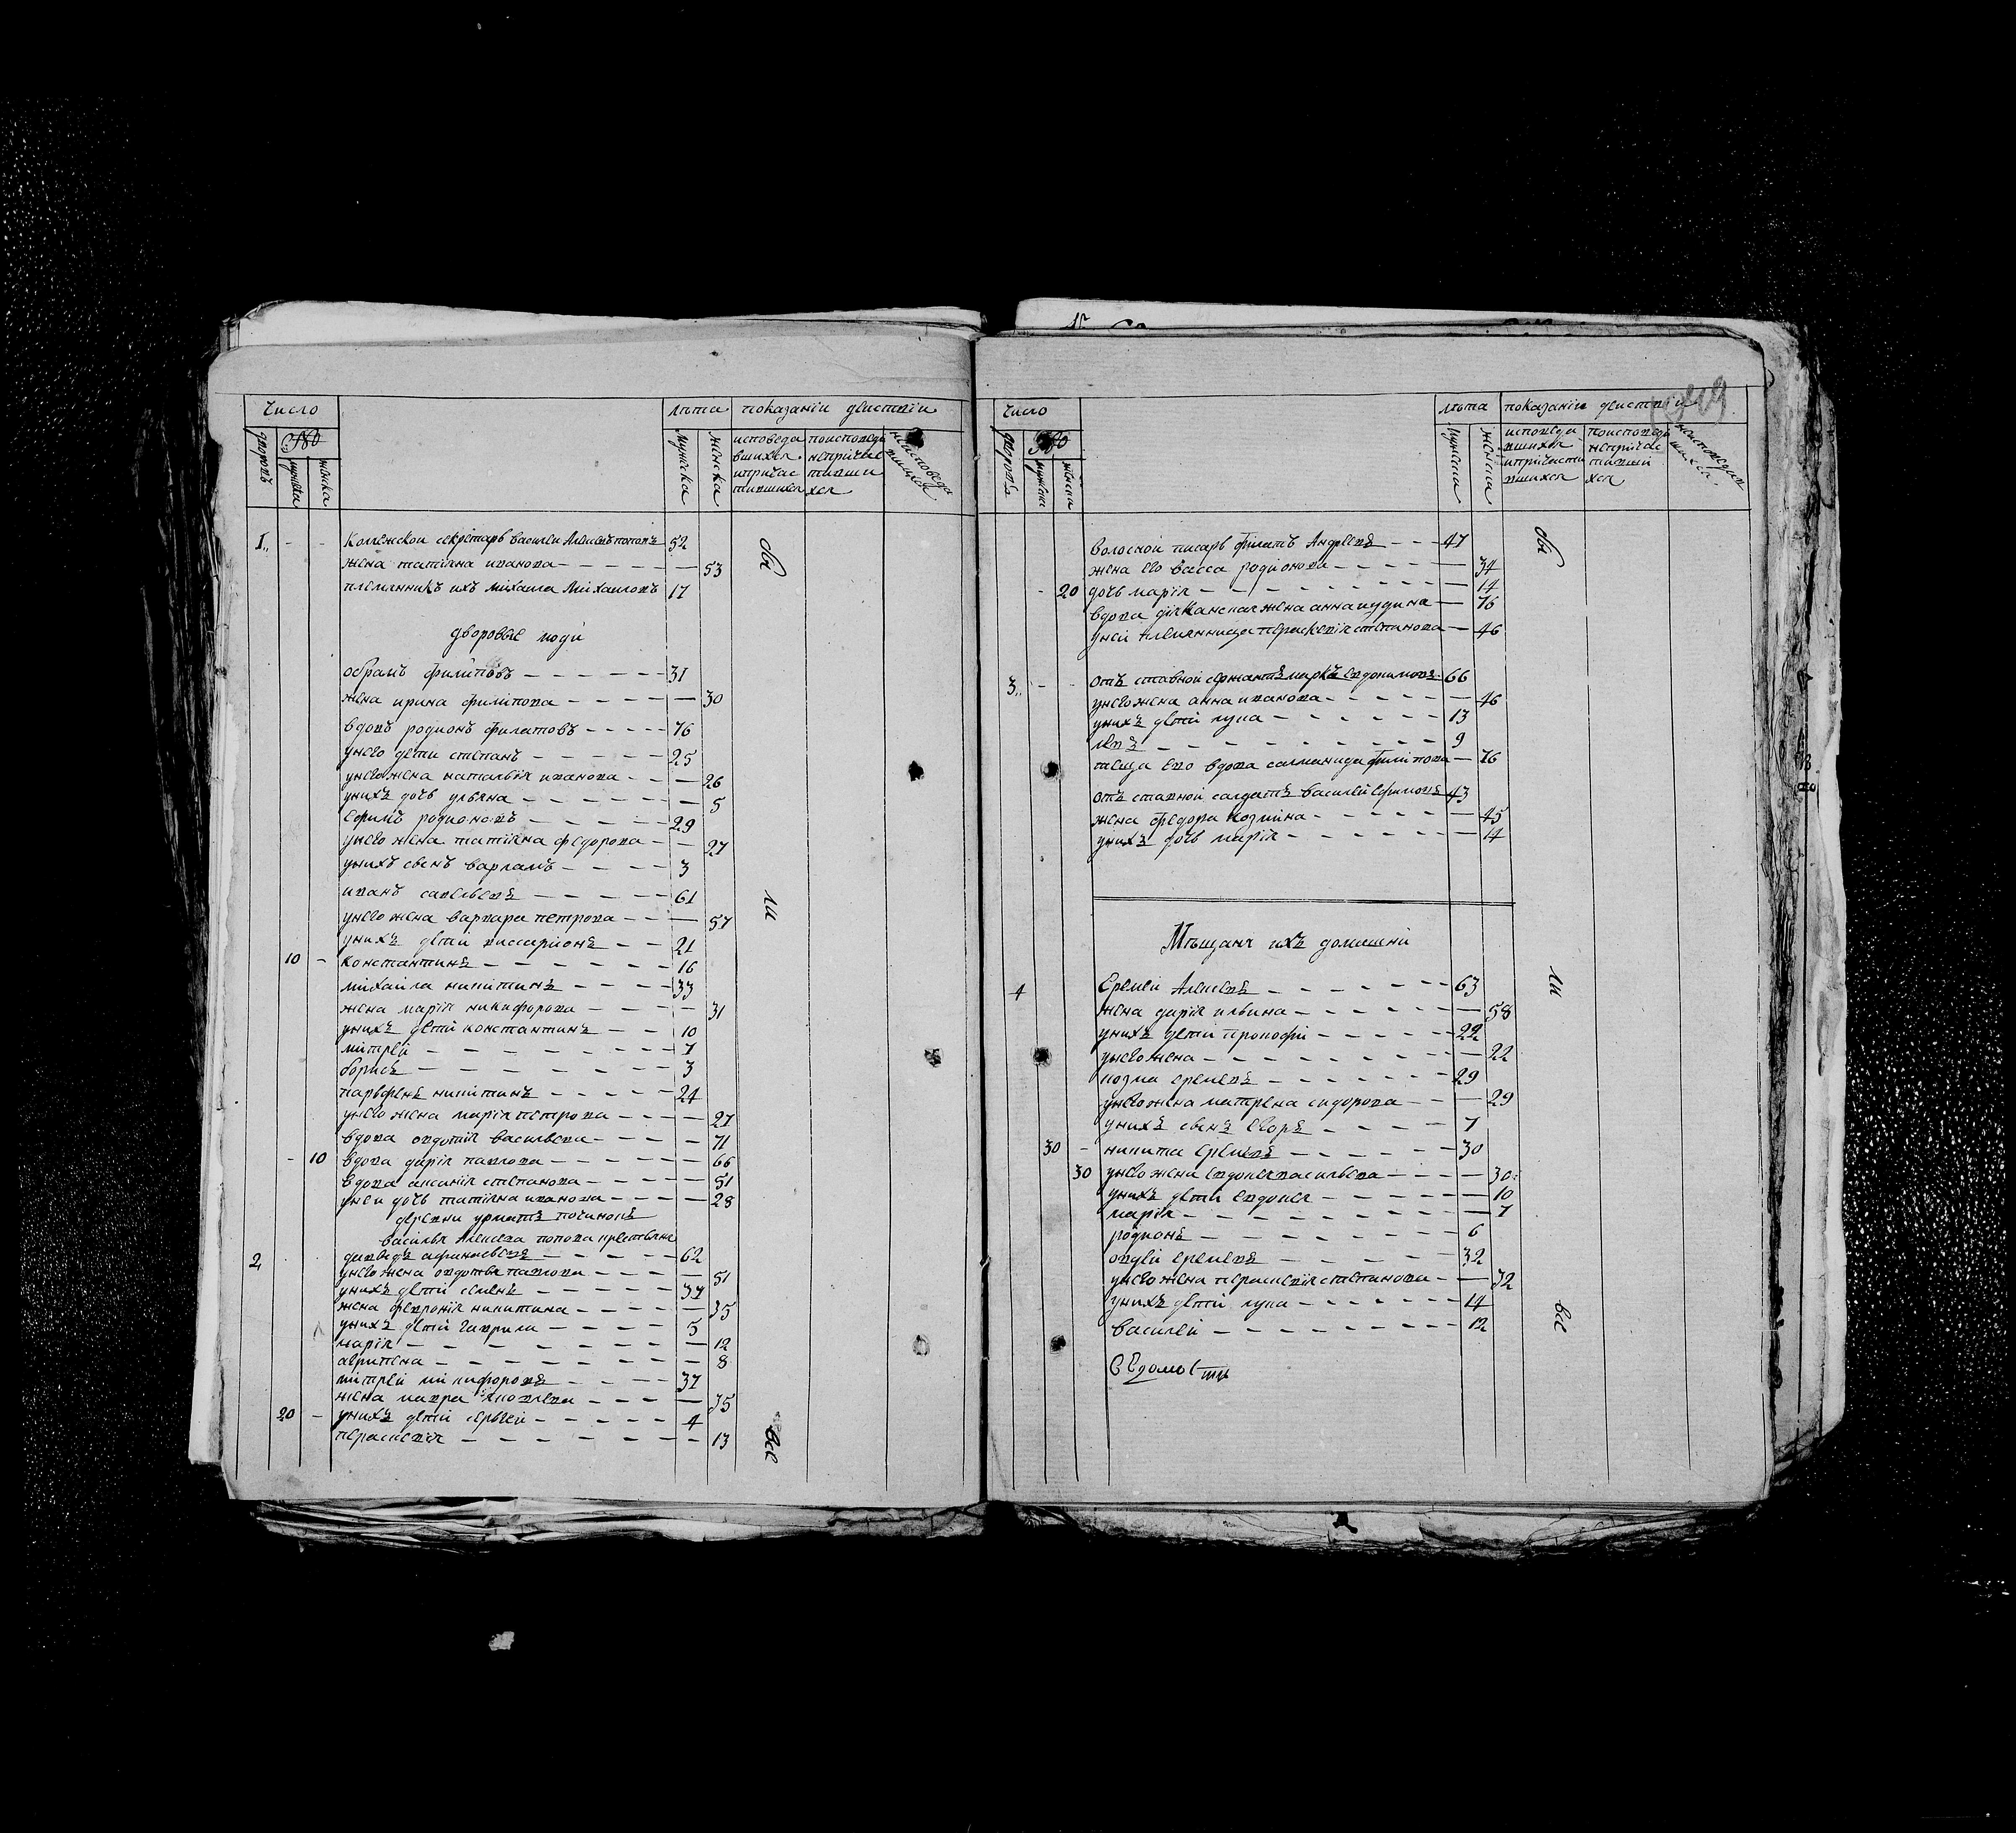 Число
лѣта показаніи дѣиствіи
дворовъ
мужска
женска
мужеска
женска
исповеда вшихся ипричас тившихся
поисповеди непричас тивши хся
неисповеда вшихся
I.. - - Колежскои секретарь василеи Алексѣевъ поповъ 52
жена татіяна иванова - - - - - 53
племянникъ ихъ михаила Михаиловъ 17
дворовые люди
обрамъ филиповъ - - - - - - 31
жена ирина филипова - - - - - 30
вдовъ родионъ филатовъ - - - - - 76
унего дети степанъ - - - - - 25
унегожена наталья иванова - - - 26
унихъ дочь ульяна - - - - - - 5
Ефимъ родионовъ - - - - - 29
унего жена татіяна федорова - - 27
унихъ сынъ варламъ - - - - 3
иванъ савельевъ - - - - - 61
унего жена варвара петрова - - - 57
унихъ дети виссарионъ - - 21
10 - константинъ - - - - - - 16
михаила никитинъ - - - - 33
жена марія никифорова - - - - 31
унихъ дети константинъ - - 10
митреи - - - - - - - 7
борисъ - - - - - - - 3
парѳенъ никитинъ - - - - - 24
унего жена марія петрова - - - - 27
вдова овдотія васильева - - - - 71
- 10 вдова дарія павлова - - - - - - 66
вдова аксинія степанова - - - - - 51
унеи дочь татіяна иванова - - - - 28
деревни урматъ починокъ
василья Алексева попова крестьяне
2, давыдъ афонасьевъ - - - - - 62
унего жена овдотья павлова - - - - 51
унихъ дети семенъ - - - - - - 37
жена февронія никитина - - - - - 35
унихъ дети гаврила - - - - - 5
марія - - - - - - - - 12
агрипена - - - - - - - - 8
митреи никифоровъ - - - - 37
жена мавра яковлева - - - - 35
20 - унихъ дети сергеи - - - - - 4
параскевія - - - - - - - 13
обы
ли
всѣ
Число
лѣта показаніи дѣиствіи
дворовъ
мужска
женска
мужеска
женска
исповеда вшихся ипричасти вшихся
поисповеди непричас тившии хся
неисповеда вшихся
Волоснои писарь Филатъ Андреевъ - - - 47
жена его васса родионова - - - - - 34
- 20 дочь марія - - - - - - - - 14
вдова дияконская жена анна иудина - 76
унеи племянница параскевія степанова - 46
3.. - - отъ ставнои сержантъ маркъ евдокимовъ 66
унегожена анна иванова - - - - - - 46
унихъ дети лука - - - - - - 13
левъ - - - - - - - - - 9
теща его вдова саламанида филипова - 76
отъ ставнои салдатъ василеи Ефимовъ 43
жена федора козмина - - - - - - 45
унихъ дочь марія - - - - - - - 14
Мѣщанъ ихъ домашніи
4 Еремеи Алексевъ - - - - - - 63
жена дарія ильина - - - - - - - 58
унихъ дети прокофіи - - - - - 22
унего жена - - - - - - - - - 22
козма еремевъ - - - - - - 29
унегожена матрена сидорова - - - 29
унихъ сынъ егоръ - - - - 7
30 - никита еремевъ - - - - - - 30
30 унего жена евдокея васильева - - - - 30
унихъ дети евдокея - - - - - - 10
марія - - - - - - - - - 7
родионъ - - - - - - - - 6
овдеи еремевъ - - - - - 32
унего жена параскевія степанова - - - 32
унихъ дети лука - - - - - - - 14
василеи - - - - - - - - - 12
обы
ли
всѣ